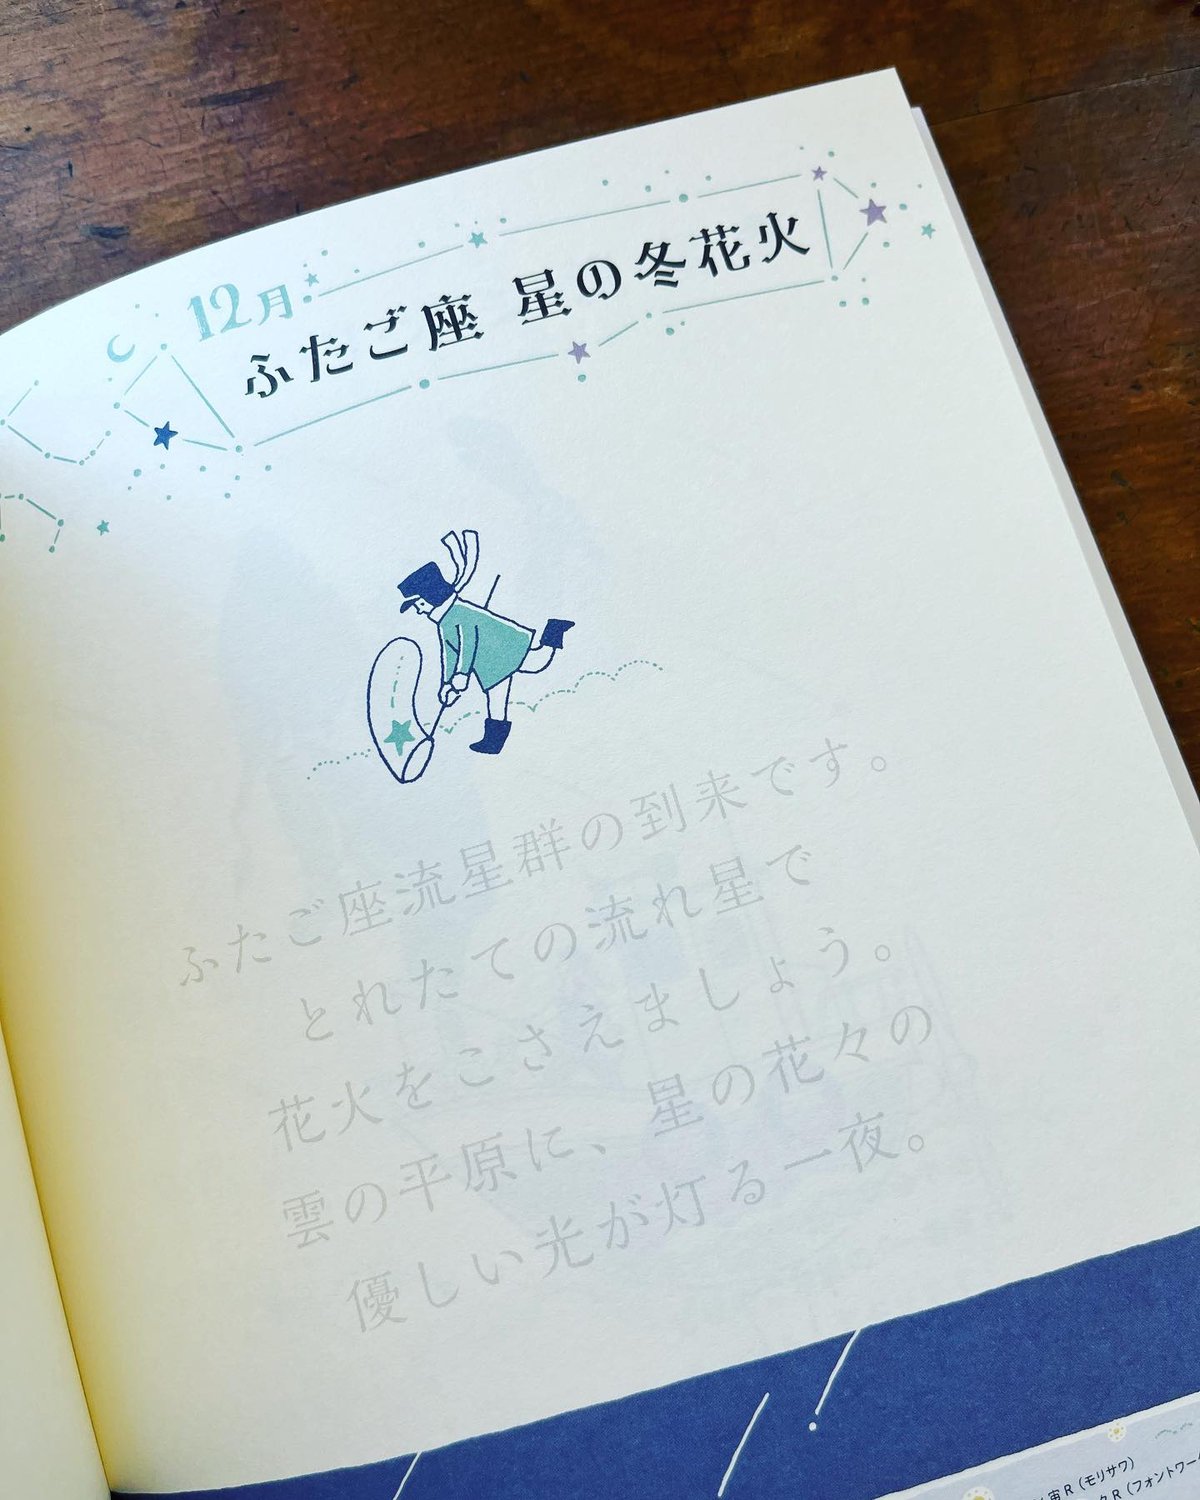 12月
ふたご座 星の冬花火
ふたご座流星群の到来です。
とれたての流れ星で
花火をこさえましょう。
雲の平原に、星の花々の
優しい光が灯る一夜。
宙R(モリサワ)
R(フォントワー